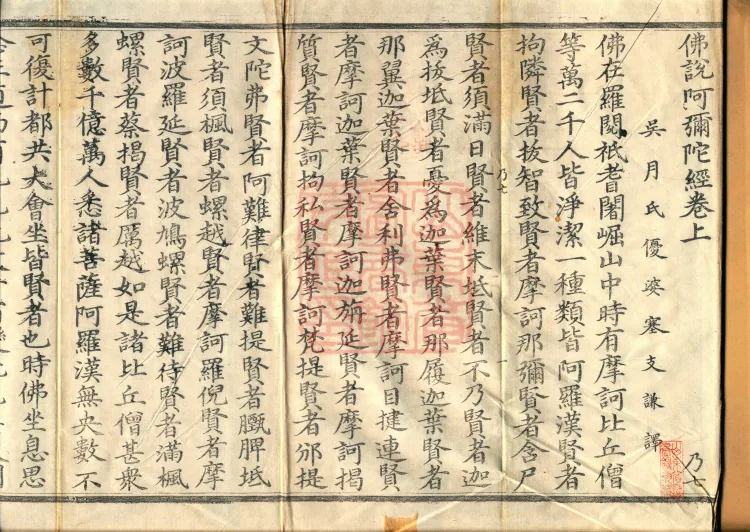 佛說阿彌陀經卷上
乃七
吳月氏優婆塞支謙譯
佛在羅閱祇耆闍崛山中時有摩訶比丘僧
等萬二千人皆淨潔一種類皆阿羅漢賢者
拘隣賢者拔智致賢者摩訶那彌賢者含尸
賢者須滿日賢者維末坻賢者不乃賢者迦
乃七
為拔坻賢者憂為迦葉賢者那履迦葉賢者
那翼迦葉賢者舍利弗賢者摩訶目揵連賢
者摩訶迦葉賢者摩訶迦旃延賢者摩訶揭
質賢者摩訶拘私賢者摩訶梵提賢者邠提
文陀弗賢者阿難律賢者難提賢者䏶脾坻
賢者須楓賢者蠡越賢者摩訶羅倪賢者摩
訶波羅延賢者波鳩螺賢者難待賢者滿楓
螺賢者蔡揭賢者厲越如是諸比丘僧甚衆
多數千億萬人悉諸菩薩阿羅漢無央數不
可復計都共大會坐皆賢者也時佛坐息思